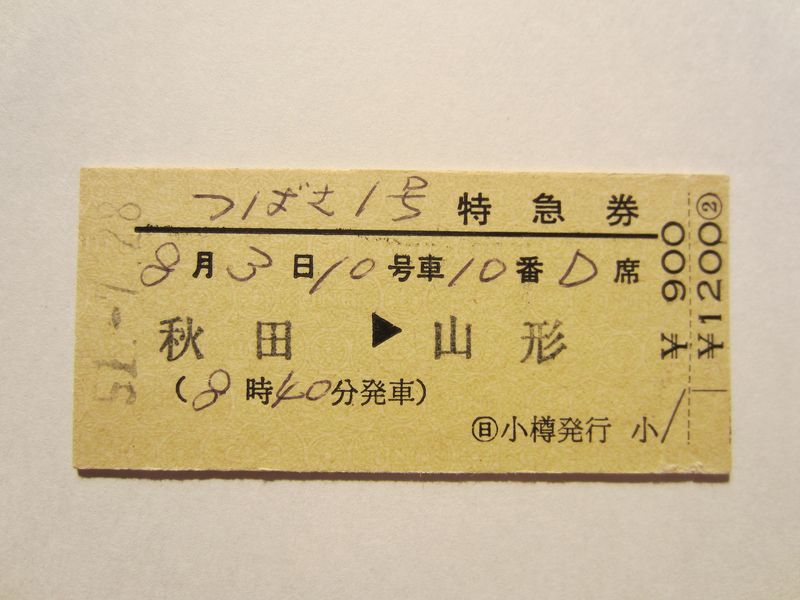 つばさ1号 特急券
8月3日10号車10番D席
秋田▶山形
(8時40分発車)
㊐小樽発行 小
51.-7.28
¥900
¥1200②